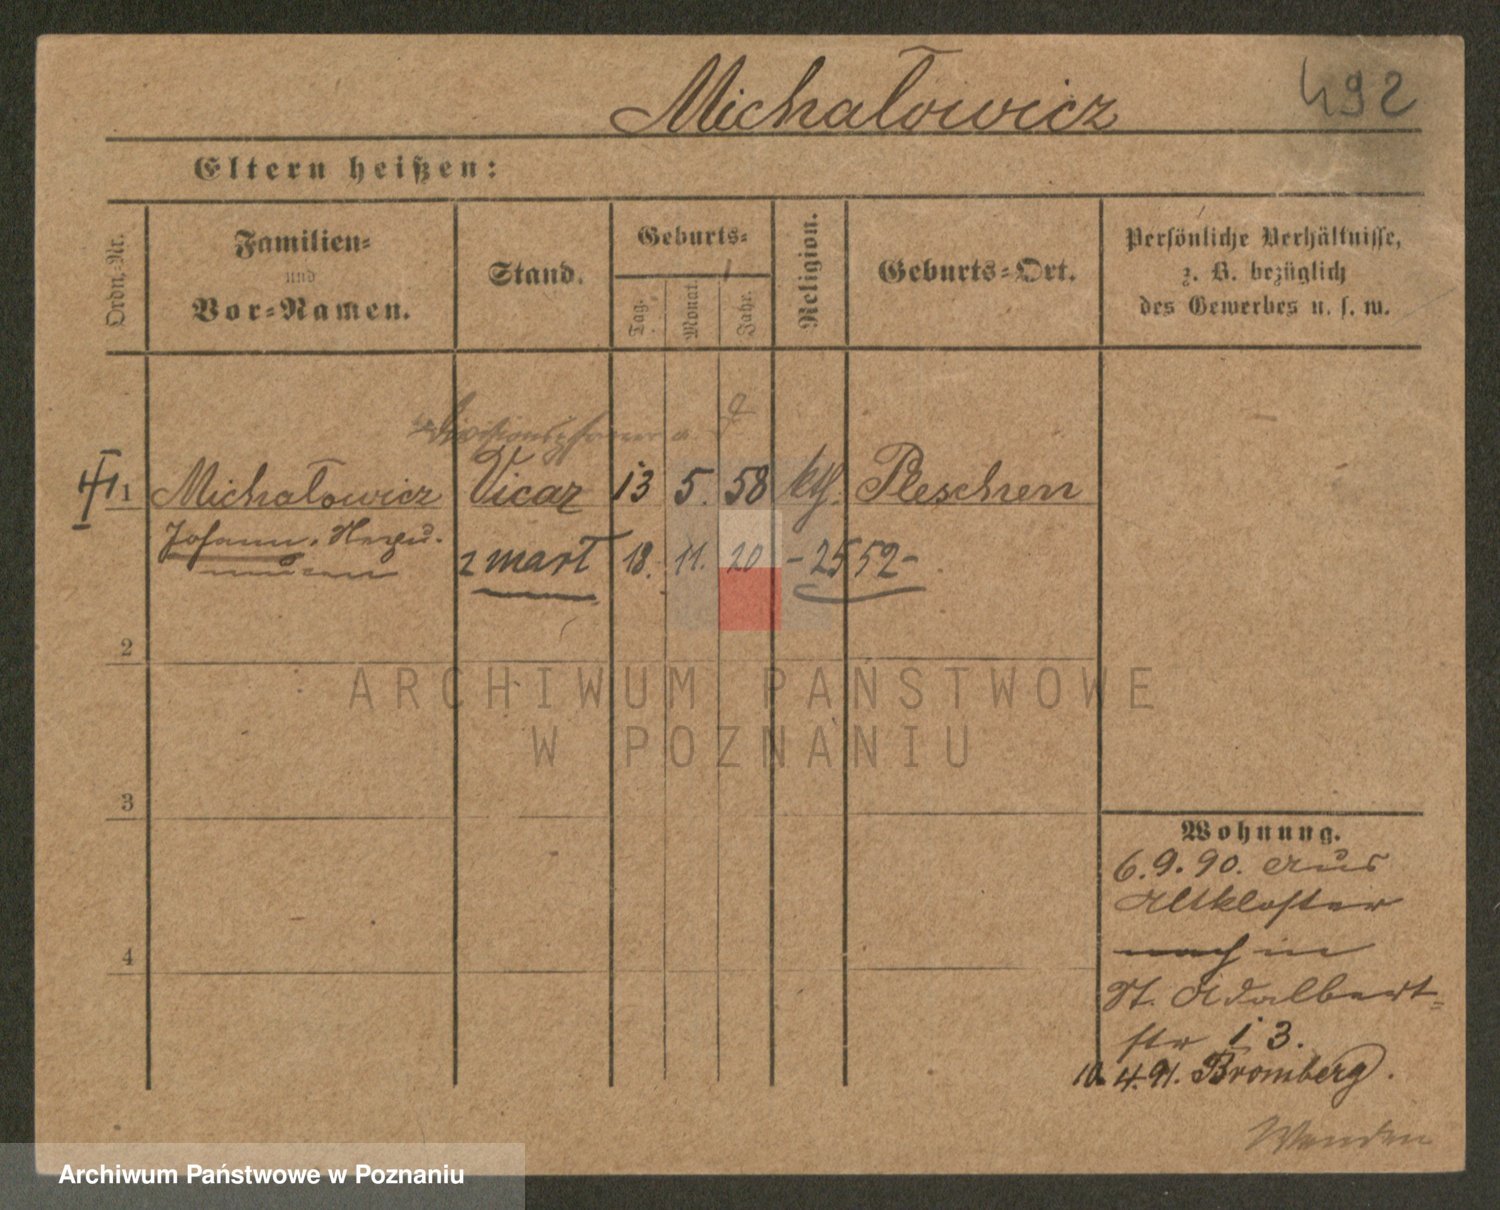 Michałowicz
492
Eltern heißen:
Ordn.-Nr.
Familien-
und
Vor-Namen.
Stand.
Geburts-
Tag.
Monat.
Jahr.
Religion.
Geburts-Ort.
Persönliche Verhältnisse,
z. B. bezüglich
des Gewerbes u. s. w.
Divisionspfarrer a. D
1 Michałowicz Vicar 13 5. 58 kth. Pleschen
Johann
18. 11. 20 - 2552 -
2
3
4
Wohnung.
6. 9. 90. aus
Altkloster
nach
St. Adalbert-
str 13.
10. 4. 91. Bromberg.
Wenden
ARCHIWUM PAŃSTWOWE
W POZNANIU
Archiwum Państwowe w Poznaniu